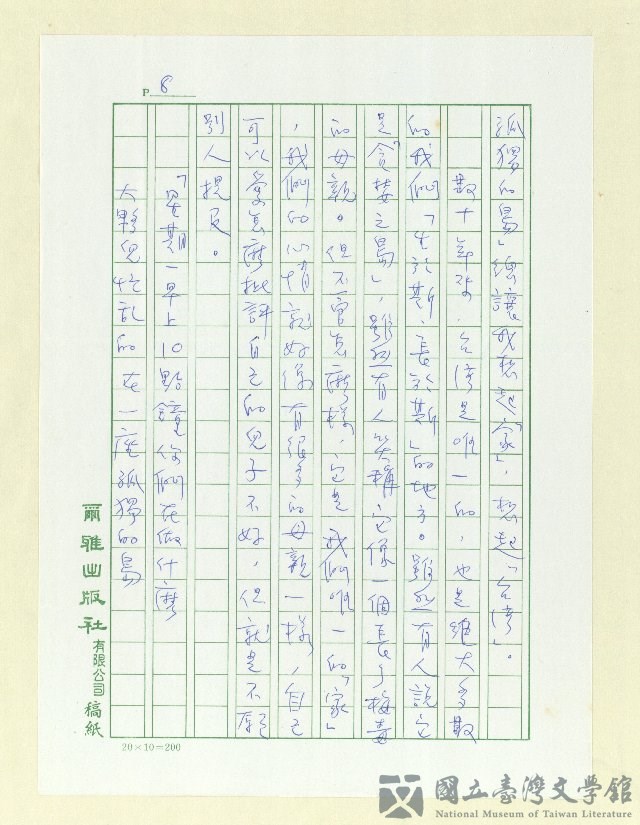 P. 8
孤獨的島」總讓我想起「家」，想起「台灣」。
數十年來，台灣是唯一的，也是絕大多數
的我們「生於斯、長於斯」的地方。雖然有人說它
是「貪婪之島」，雖然有人笑稱它像一個長了梅毒
的母親。但不管怎麼樣，它是我們唯一的「家」
，我們的心情就好像有很多的母親一樣，自己
可以當怎麼批評自己的兒子不好，但就是不願
別人提及。
「星期一早上10點鐘你們在做什麼
大夥兒忙亂的在一座孤獨的島
爾雅出版社有限公司稿紙
20×10=200
國立臺灣文學館
National Museum of Taiwan Literature